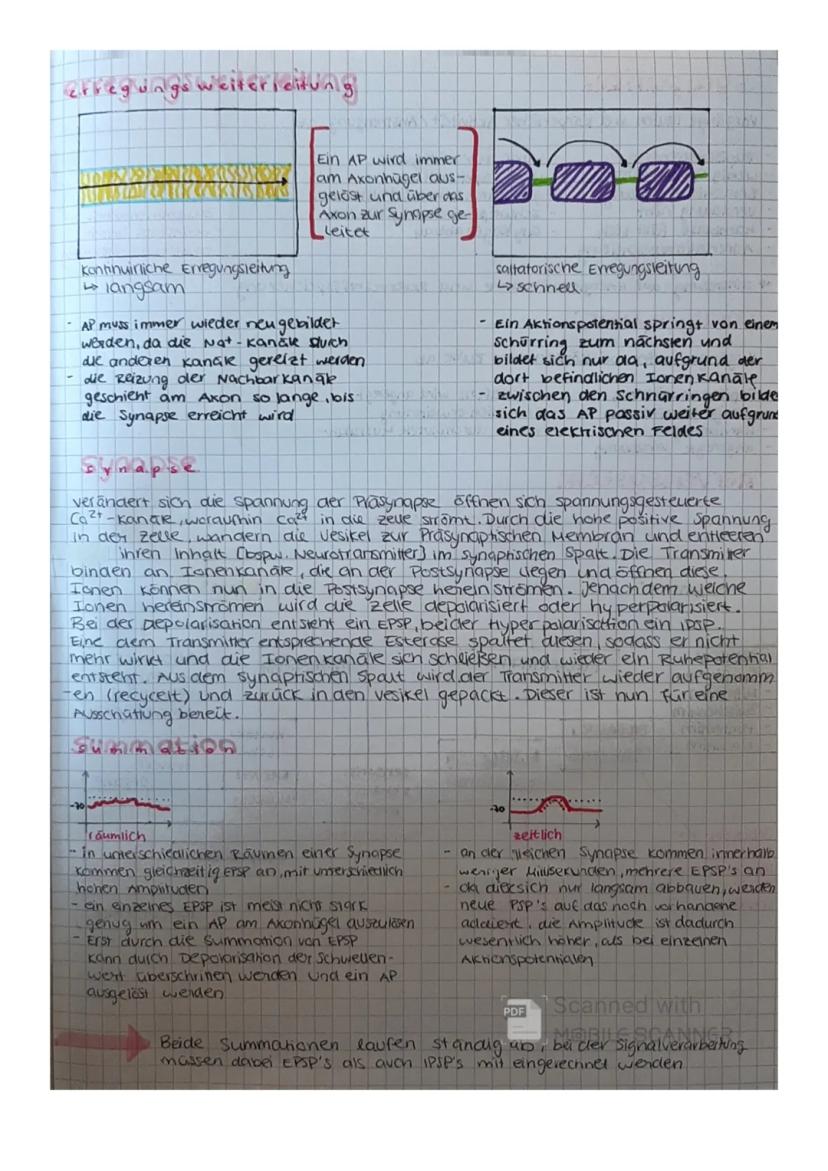 erregungsweiterleitung
Ein AP wird immer
am Axonhügel aus-
gelöst und über das
Axon zur Synapse ge-
leitet
kontinuirliche Erregungsleitung
↳ langsam
- AP muss immer wieder neu gebildet
werden, da die Na+-Kanäle durch
die anderen Kanäle gereizt werden
- die Reizung der Nachbarkanäle
geschieht am Axon so lange, bis
die Synapse erreicht wird
saltatorische Erregungsleitung
↳ schnell
- Ein Aktionspotential springt von einem
schürring zum nächsten und
bildet sich nur da, aufgrund der
dort befindlichen Ionenkanäle
- zwischen den Schnürringen bilde
sich das AP passiv weiter aufgrun
eines elektrischen Feldes
Synapse
verändert sich die Spannung der Präsynapse öffnen sich spannungsgesteuerte
Ca²⁺-Kanäle, woraufhin Ca²⁺ in die Zelle strömt. Durch die hohe positive Spannung
in der Zelle, wandern die Vesikel zur Präsynaptischen Membran und entleeren
ihren Inhalt (bspw. Neurotransmitter) im synaptischen Spalt. Die Transmitter
binden an Ionenkanäle, die an der Postsynapse liegen und öffnen diese.
Ionen können nun in die Postsynapse hereinströmen. Jenachdem welche
Ionen hereinströmen wird die Zelle depolarisiert oder hyperpolarisiert.
Bei der Depolarisation entsteht ein EPSP, bei der Hyperpolarisation ein IPSP.
Eine dem Transmitter entsprechende Esterase spaltet diesen, sodass er nicht
mehr wirkt und die Ionenkanäle sich schließen und wieder ein Ruhepotential
entsteht. Aus dem synaptischen Spalt wird der Transmitter wieder aufgenomm
-en (recycelt) und zurück in den Vesikel gepackt. Dieser ist nun für eine
Ausschüttung bereit.
Summation
-70
räumlich
- in unterschiedlichen Räumen einer Synapse
kommen gleichzeitig EPSP an, mit unterschiedlich
hohen Amplituden
- ein einzelnes EPSP ist meist nicht stark
genug um ein AP am Axonhügel auszulösen
- Erst durch die Summation von EPSP
kann durch Depolarisation der Schwellen-
wert überschritten werden und ein AP
ausgelöst werden
-70
zeitlich
- an der gleichen Synapse kommen innerhalb
weniger Millisekunden, mehrere EPSP's an
- da die sich nur langsam abbauen, werden
neue PSP's auf das noch vorhandene
addiert, die Amplitude ist dadurch
wesentlich höher, als bei einzelnen
Aktionspotentialen
PDF
Scanned with
MOBILE SCANNER
Beide Summationen laufen ständig ab, bei der Signalverarbeitung
müssen dabei EPSP's als auch IPSP's mit eingerechnet werden